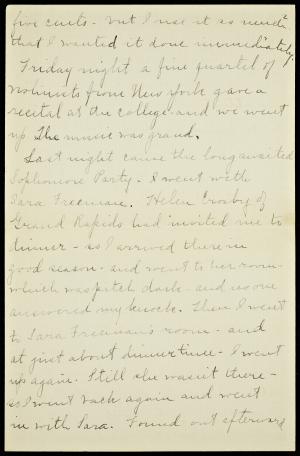 five cents - but I use it so much
that I wanted it done immediately.
Friday night a fine quartel of
violinists from New York gave a
recital at the college - and we went
up. The music was grand.
Last night came the long awaited
Sophomore Party - I went with
Sara Freeman. Helen Crosby of
Grand Rapids had invited me to
dinner - so I arrived there in
good season - and went to her room -
which was pitch dark - and no one
answered my knock. Then I went
to Sara Freeman's room - and
at just about dinner time - I went
up again. Still she wasn't there -
so I went back again and went
in with Sara. Found out afterward